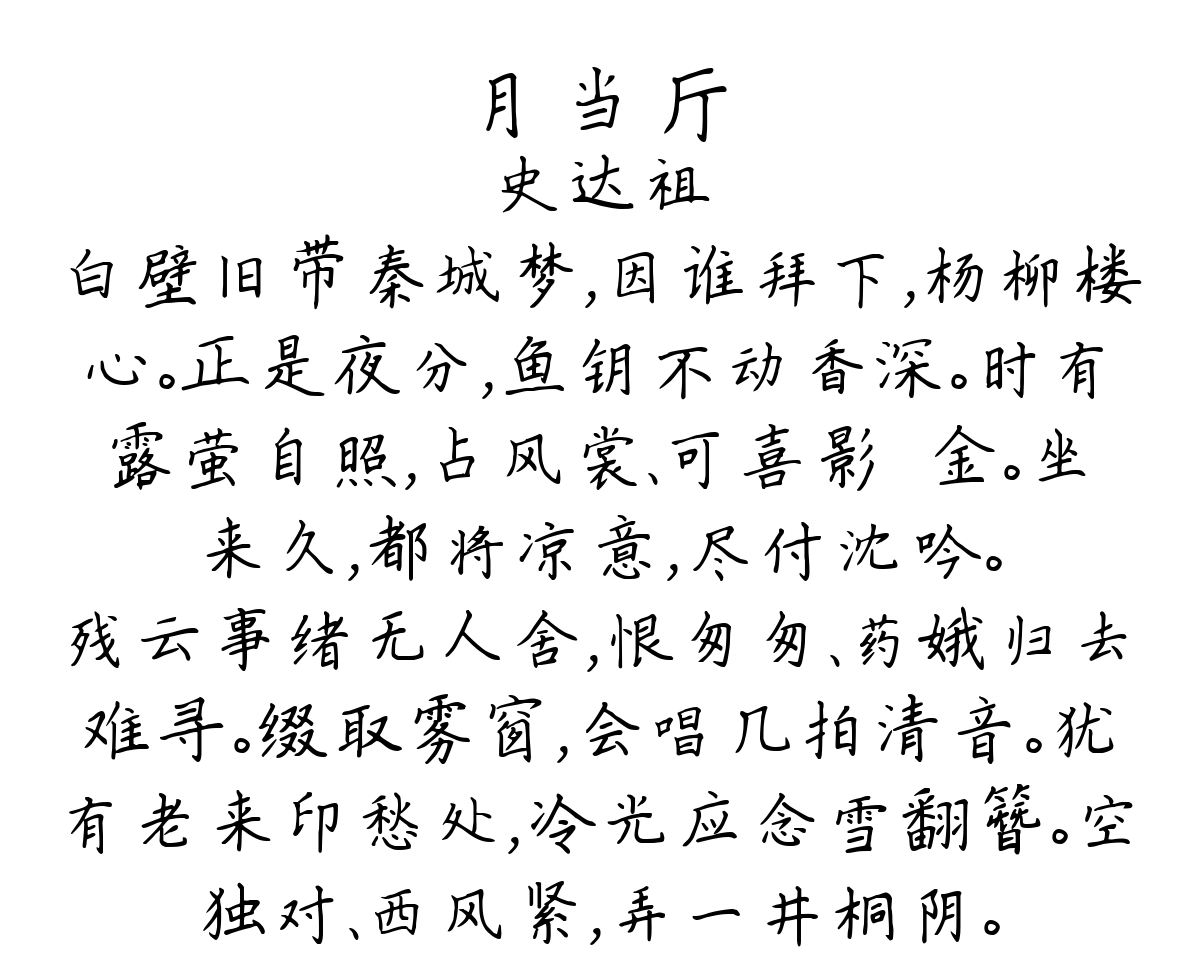 月当厅
史达祖
白壁旧带秦城梦,因谁拜下,杨柳楼
心。正是夜分,鱼钥不动香深。时有
露萤自照,占风裳、可喜影 金。坐
来久,都将凉意,尽付沈吟。
残云事绪无人舍,恨匆匆、药娥归去
难寻。缀取雾窗,会唱几拍清音。犹
有老来印愁处,冷光应念雪翻簪。空
独对、西风紧,弄一井桐阴。